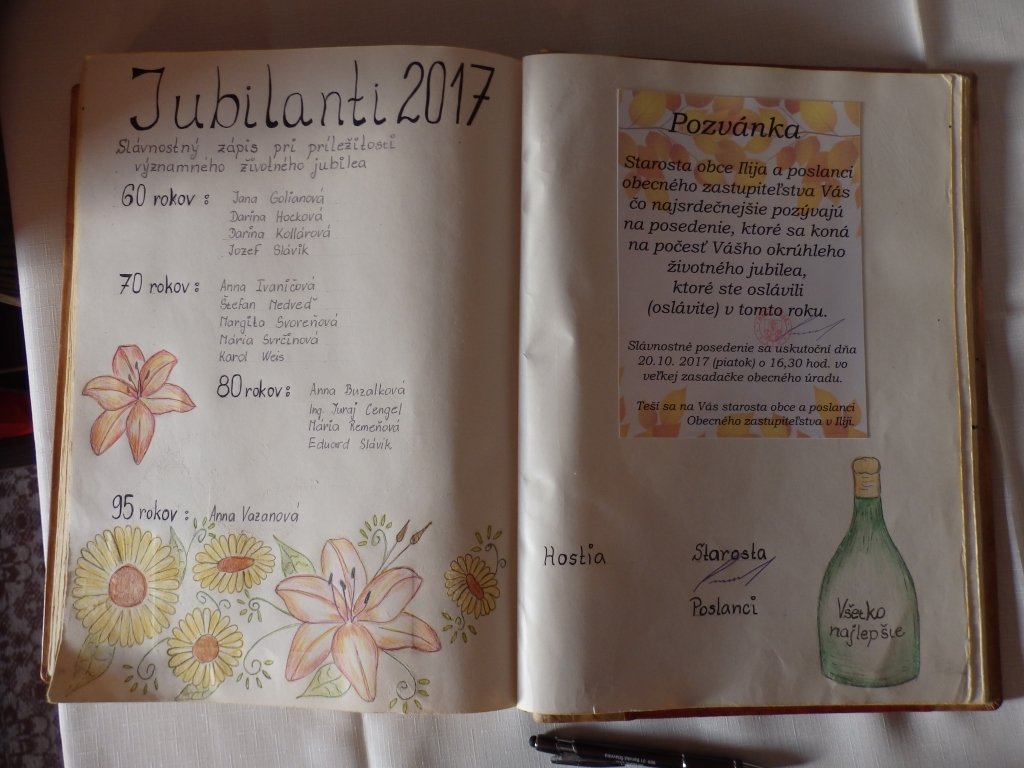 Jubilanti 2017
Slávnostný zápis pri príležitosti
významného životného jubilea
60 rokov: Jana Golianová
Darina Hocková
Darina Kollárová
Jozef Slávik
70 rokov: Anna Ivaničová
Štefan Medveď
Margita Svoreňová
Mária Svrčinová
Karol Weis
80 rokov: Anna Buzalková
Ing. Juraj Cengel
Mária Remeňová
Eduard Slávik
95 rokov: Anna Vazanová
Pozvánka
Starosta obce Ilija a poslanci
obecného zastupiteľstva Vás
čo najsrdečnejšie pozývajú
na posedenie, ktoré sa koná
na počesť Vášho okrúhleho
životného jubilea,
ktoré ste oslávili
(oslávite) v tomto roku.
Slávnostné posedenie sa uskutoční dňa
20.10. 2017 (piatok) o 16,30 hod. vo
veľkej zasadačke obecného úradu.
Teší sa na Vás starosta obce a poslanci
Obecného zastupiteľstva v Iliji.
Hostia
Starosta
Poslanci
Všetko
najlepšie